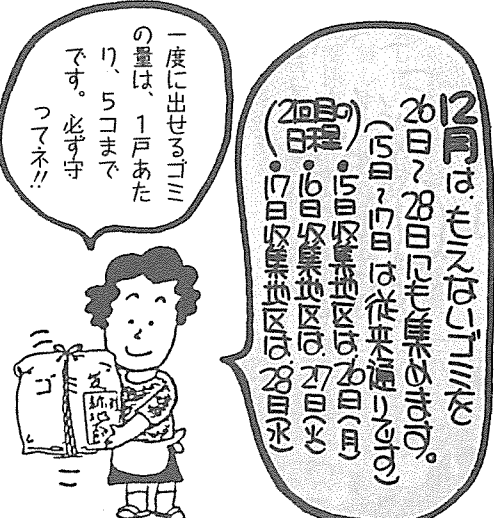 12月は、もえないゴミを
26日〜28日にも集めます。
(15日〜17日は従来通りです)
(2回目の日程)
•15日収集地区は、26日(月)
•16日収集地区は、27日(火)
•17日収集地区は、28日(水)
一度に出せるゴミ
の量は、1戸あた
り、5コまで
です。必ず守
ってネ!!
ゴ